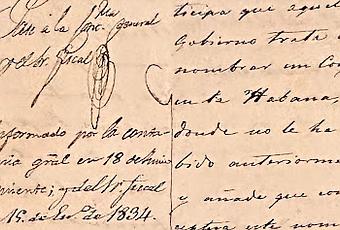 Pase à la Cont.ª General
y al Sr. Fiscal
Informado por la conta
uria gñal en 18 de
y del Sr. fiscal
15. de En.º de 1834.
ticipa que aquel
Gobierno trata d
nombrar un Con
en la Habana,
donde no le ha
bido anteriorme
y añade que con
este nom